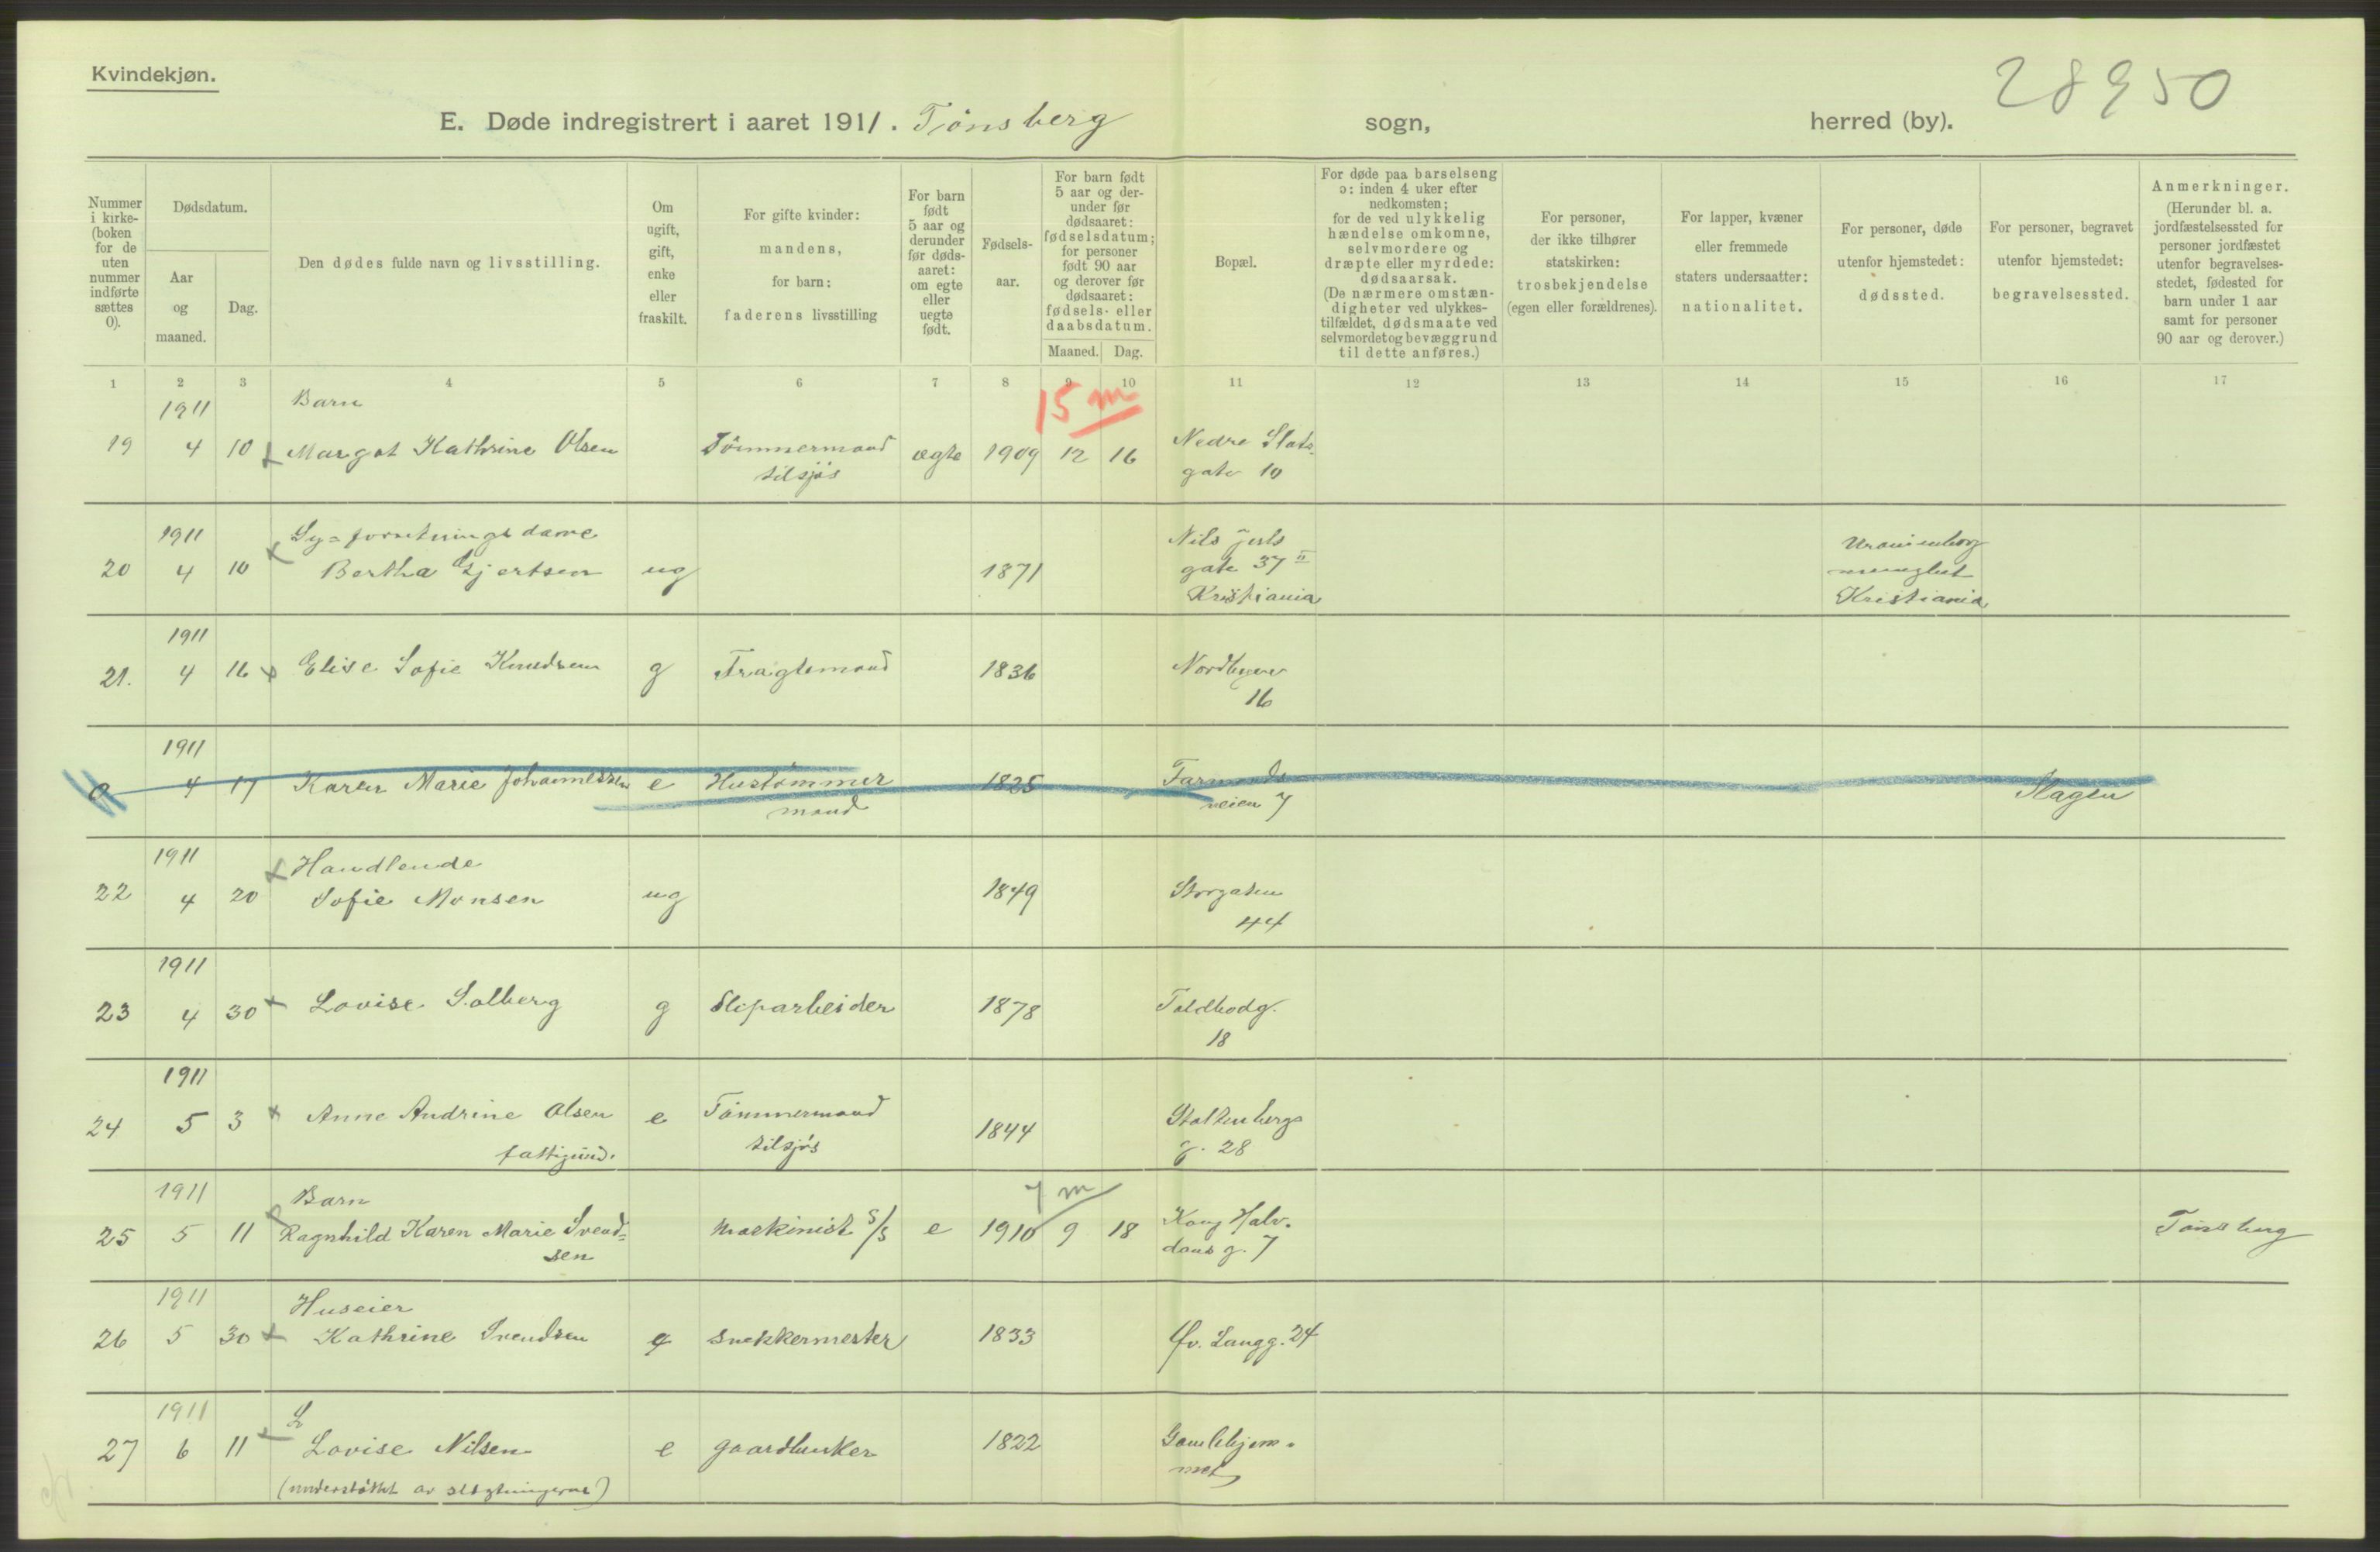 Kvindekjøn.
28950
E. Døde indregistrert i aaret 1911. Tönsberg sogn, herred (by).
Nummer i kirke- (boken for de uten nummer indførte sættes 0).
Dødsdatum.
Aar og maaned.
Dag.
Den dødes fulde navn og livsstilling.
Om ugift, gift, enke eller fraskilt.
For gifte kvinder: mandens, for barn: faderens livsstilling
For barn født 5 aar og derunder før døds- aaret: om egte eller uegte født.
Fødsels- aar.
For barn født 5 aar og der- under før dødsaaret: fødselsdatum; for personer født 90 aar og derover før dødsaaret: fødsels- eller daabsdatum.
Maaned. Dag.
Bopæl.
For døde paa barselseng ɔ: inden 4 uker efter nedkomsten; for de ved ulykkelig hændelse omkomne, selvmordere og dræpte eller myrdede: dødsaarsak. (De nærmere omstæn- digheter ved ulykkes- tilfældet, dødsmaate ved selvmordet og bevæggrund til dette anføres.)
For personer, der ikke tilhører statskirken: trosbekjendelse (egen eller forældrenes).
For lapper, kvæner eller fremmede staters undersaatter: nationalitet.
For personer, døde utenfor hjemstedet: dødssted.
For personer, begravet utenfor hjemstedet: begravelsessted.
Anmerkninger. (Herunder bl. a. jordfæstelsessted for personer jordfæstet utenfor begravelses- stedet, fødested for barn under 1 aar samt for personer 90 aar og derover.)
1 2 3 4 5 6 7 8 9 10 11 12 13 14 15 16 17
1911 Barn 15 m
19 4 10 Margot Kathrine Olsen Tömmermand ægte 1909 12 16 Nedre Slots
tilsjøs gate 10
1911 Sy=forretningsdame Nils Juels Uranienborg
20 4 10 Bertha Gjertsen ug 1871 gate 37 II menighet
Kristiania Kristiania
1911
21. 4 16 Elise Sofie Knudsen g Fragtemand 1836 Nordbyen
16
1911
0 4 17 Karen Marie Johannessen e Hustömmer 1825 Farmands Slagen
mand veien 7
1911 Handlende
22 4 20 Sofie Monsen ug 1849 Storgaten
44
1911
23 4 30 Lovise Solberg g Sliparbeider 1878 Toldbodg.
18
1911
24 5 3 Anne Andrine Olsen e Tömmermand 1844 Stoltenbergs
fattigund. tilsjøs g. 28
1911 Barn 7 m
25 5 11 Ragnhild Karen Marie Svend= Maskinist S/S e 1910 9 18 Kong Halv. Tönsberg
sen dans g. 7
1911 Huseier
26 5 30 Kathrine Svendsen g Snekkermester 1833 Øv. Langg. 24
1911 L
27 6 11 Lovise Nilsen e gaardbruker 1822 Gamlehjem-
(understöttet av slegtningerne) met